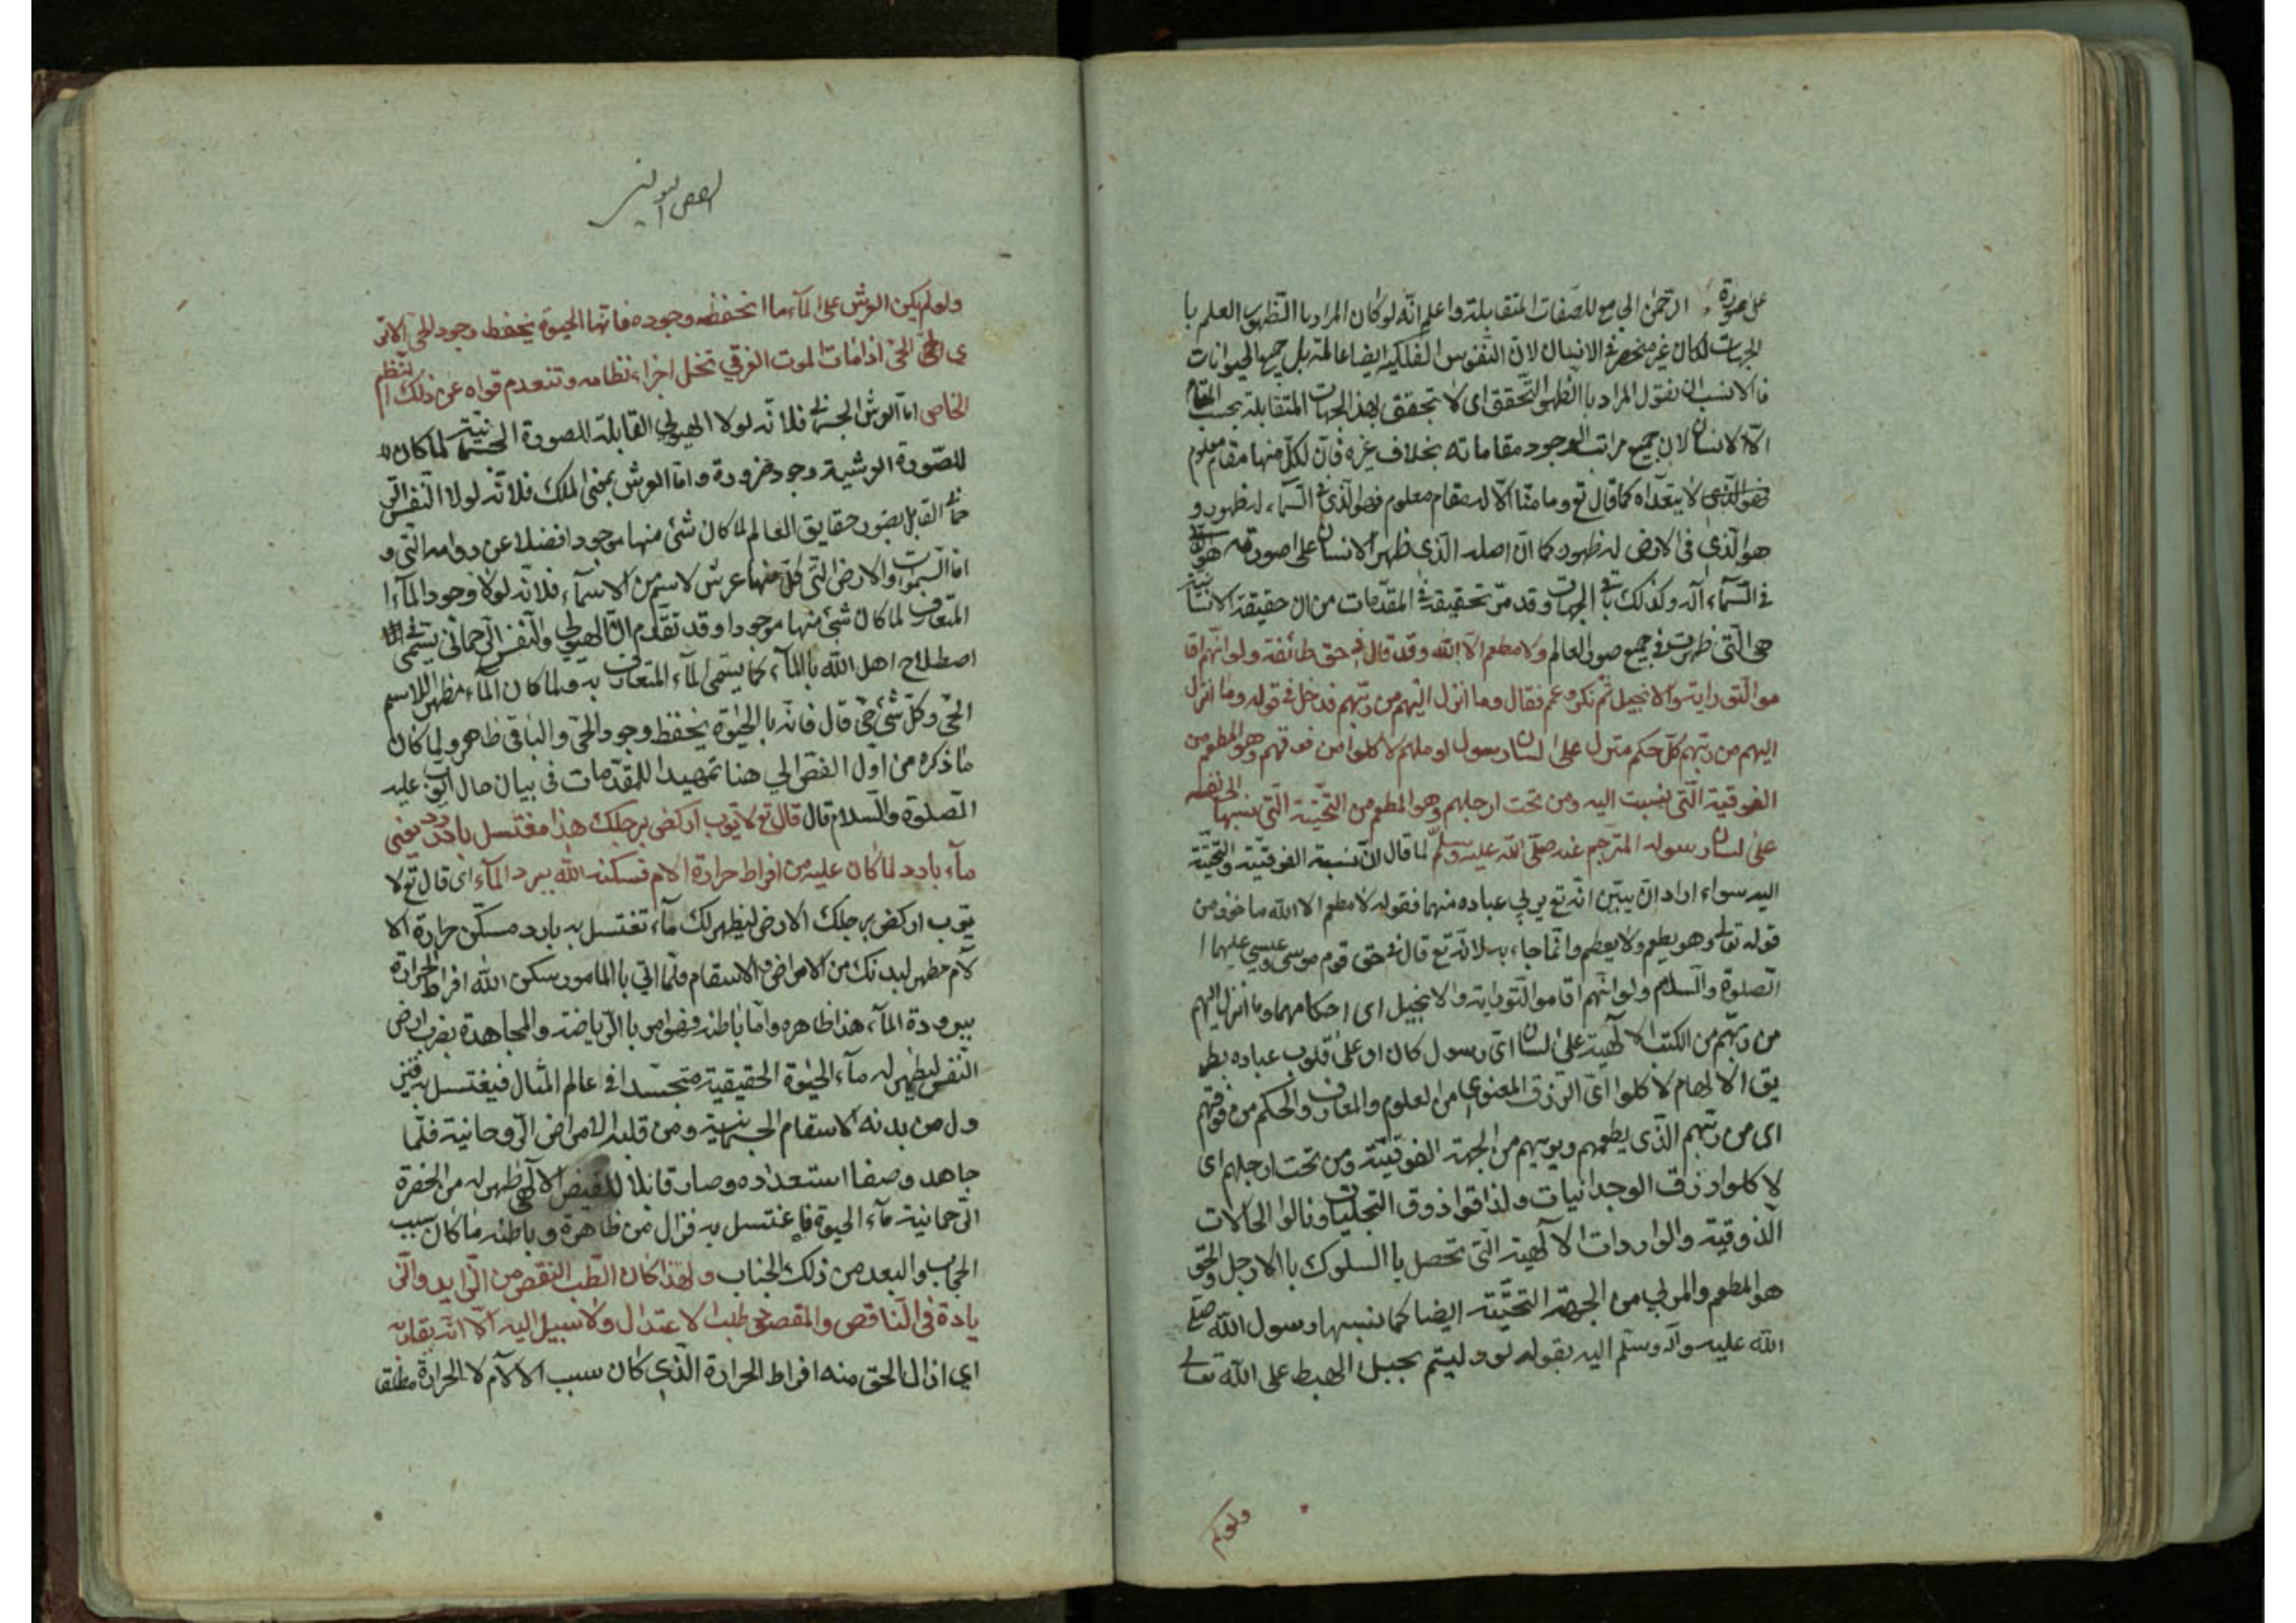 على صورة الرّحمن الجامع للصّفات المتقابلة واعلم انّه لو كان المراد با الظّهور العلم با
الجهات لكان غير منحصر فى الانسان لان النّفوس الفلكيه ايضا عالمة بل جميع الحيوانات
فالانسب ان نقول المراد با الظهور التّحقق اى لا تحقق لهذ الجهات المتقابلة بحسب المقام
الّا الانسان لان جميع مراتب الوجود مقاماته بخلاف غيره فانّ لكلّ منها مقام معلوم
لا يتعدّاه كما قال تع وما منّا الّا له مقام معلوم فهو الّذى فى السّماء له ظهور و
هو الّذى فى الارض له ظهور كما انّ اصله الّذى ظهر الانسان على صورته هو الّذى
فى السّماء اله وكذلك باقى الجهات وقد مرّ تحقيقه فى المقدّمات من ان حقيقة الانسانية
هى الّتى ظهرت فى جميع صور العالم ولا مطعم الّا الله وقد قال فى حق طائفة ولو انّهم اقا
مو التّوراية والانجيل ثم نكّر وعمّ فقال وما أنزل اليهم من ربّهم فدخل فى قوله وما انزل
اليهم من ربّهم كلّ حكم منزل على لسان رسول او ملهم لاكلوا من فوقهم وهو المطعم من
الفوقية الّتى نسبت اليه ومن تحت ارجلهم وهو المطعم من التّحتيّة الّتى نسبها الى نفسه
على لسان رسوله المترجم عنه صلّى الله عليه وسلّم لما قال انّ نسبة الفوقيّة والتّحتيّة
اليه سواء اراد ان يبيّن انّه تع يربى عباده منهما فقوله لا مطعم الا الله ماخوذ من
قوله تعالى وهو يطعم ولا يعطم وانّما جاء به لانّه تع قال فى حق قوم موسى وعيسى عليهما ا
الصّلوة والسّلام ولو انّهم اقامو التّوراية والانجيل اى احكامهما وما أنزل اليهم
من ربّهم من الكتب الالهية على لسان اىّ رسول كان او على قلوب عباده بطر
يق الالهام لاكلوا اىّ الرّزق المعنوى من العلوم والمعارف والحكم من فوقهم
اى من ربّهم الّذى يطعمهم ويربيهم من الجهة الفوقيّة ومن تحت ارجلهم اى
لاكلوا رزق الوجدانيات ولذاقوا ذوق التجليات ونالوا الحالات
الذوقية والواردات الالهية الّتى تحصل با السلوك با الارجل والحق
هو المطعم والمربى من الجهة التحتيّة ايضا كما نسبها رسول الله صلّى
الله عليه واله وسلّم اليه بقوله لو دليتم بحبل الهبط على الله تعالى
ولو لم
ولو لم يكن العرش على الماء ما انحفظ وجوده فانّها الحيوة ينحفظ وجود الحى الاتر
ى الحىّ اذا مات الموت العرفي تنحل اجزاء نظامه وتنعدم قواه عن ذلك النّظم
الخاص امّا العرش الجسمانى فلانّه لولا الهيولي القابلة للصورة الجسمانية لما كان
للصّورة العرشية وجود ضرورة وامّا العرش بمعنى الملك فلانّه لولا النّفس الر
حمانى القابل بصور حقايق العالم لما كان شئ منها موجودا فضلا عن دوامه التّى و
امّا السّموات والارض الّتى كلّ منها عرش لاسم من الاسمآء فلانّه لولا وجود المآء ا
المتعارف لما كان شئ منها موجودا وقد تقدّم انّ الهيولي والنّفس الرّحمانى يسمّى فى
اصطلاح اهل الله با المآء كما يسمّى المآء المتعارف به ولما كان المآء مظهر للاسم
الحىّ وكلّ شئ حىّ قال فانّه با الحيوة ينحفظ وجود الحىّ والباقى ظاهر ولما كان
ما ذكره من اول الفصّ الى هنا تمهيدا للمقدّمات فى بيان حال ايّوب عليه
الصّلوة والسّلام قال قال تع لايّوب اركض برجلك هذا مغتسل بارد يعنى
مآء بارد لما كان عليه من افراط حرارة الالام فسكنه الله ببرد المآء اى قال تع لا
يّوب اركض برجلك الارض ليظهر لك مآء تغتسل به بارد مسكّن حرارة الا
لام مطهر لبدنك من الامراض والاسقام فلمّا اتى با المامور سكن الله افراط الحرارة
ببرودة المآء هذا ظاهره وامّا باطنه فهو امر با الرّياضة والمجاهدة بضرب ارض
النّفس ليظهر له مآء الحيوة الحقيقية متجسّدا فى عالم المثال فيغتسل به فيز
ول من بدنه الاسقام الجسمانية ومن قلبه الامراض الرّوحانية فلمّا
جاهد وصفا استعداده وصار قابلا للفيض الالهى ظهر له من الحضرة
الرّحمانية مآء الحيوة فاغتسل به فزال من ظاهره وباطنه ما كان سبب
الحجاب والبعد من ذلك الجناب ولهذا كان الطّب النّقص من الزّايد والزّ
يادة فى النّاقص والمقصود طلب الاعتدال ولا سبيل اليه الّا انّه يقاربه
اي ازال الحق منه افراط الحرارة الّذى كان سبب الالآم لا الحرارة مطلقا